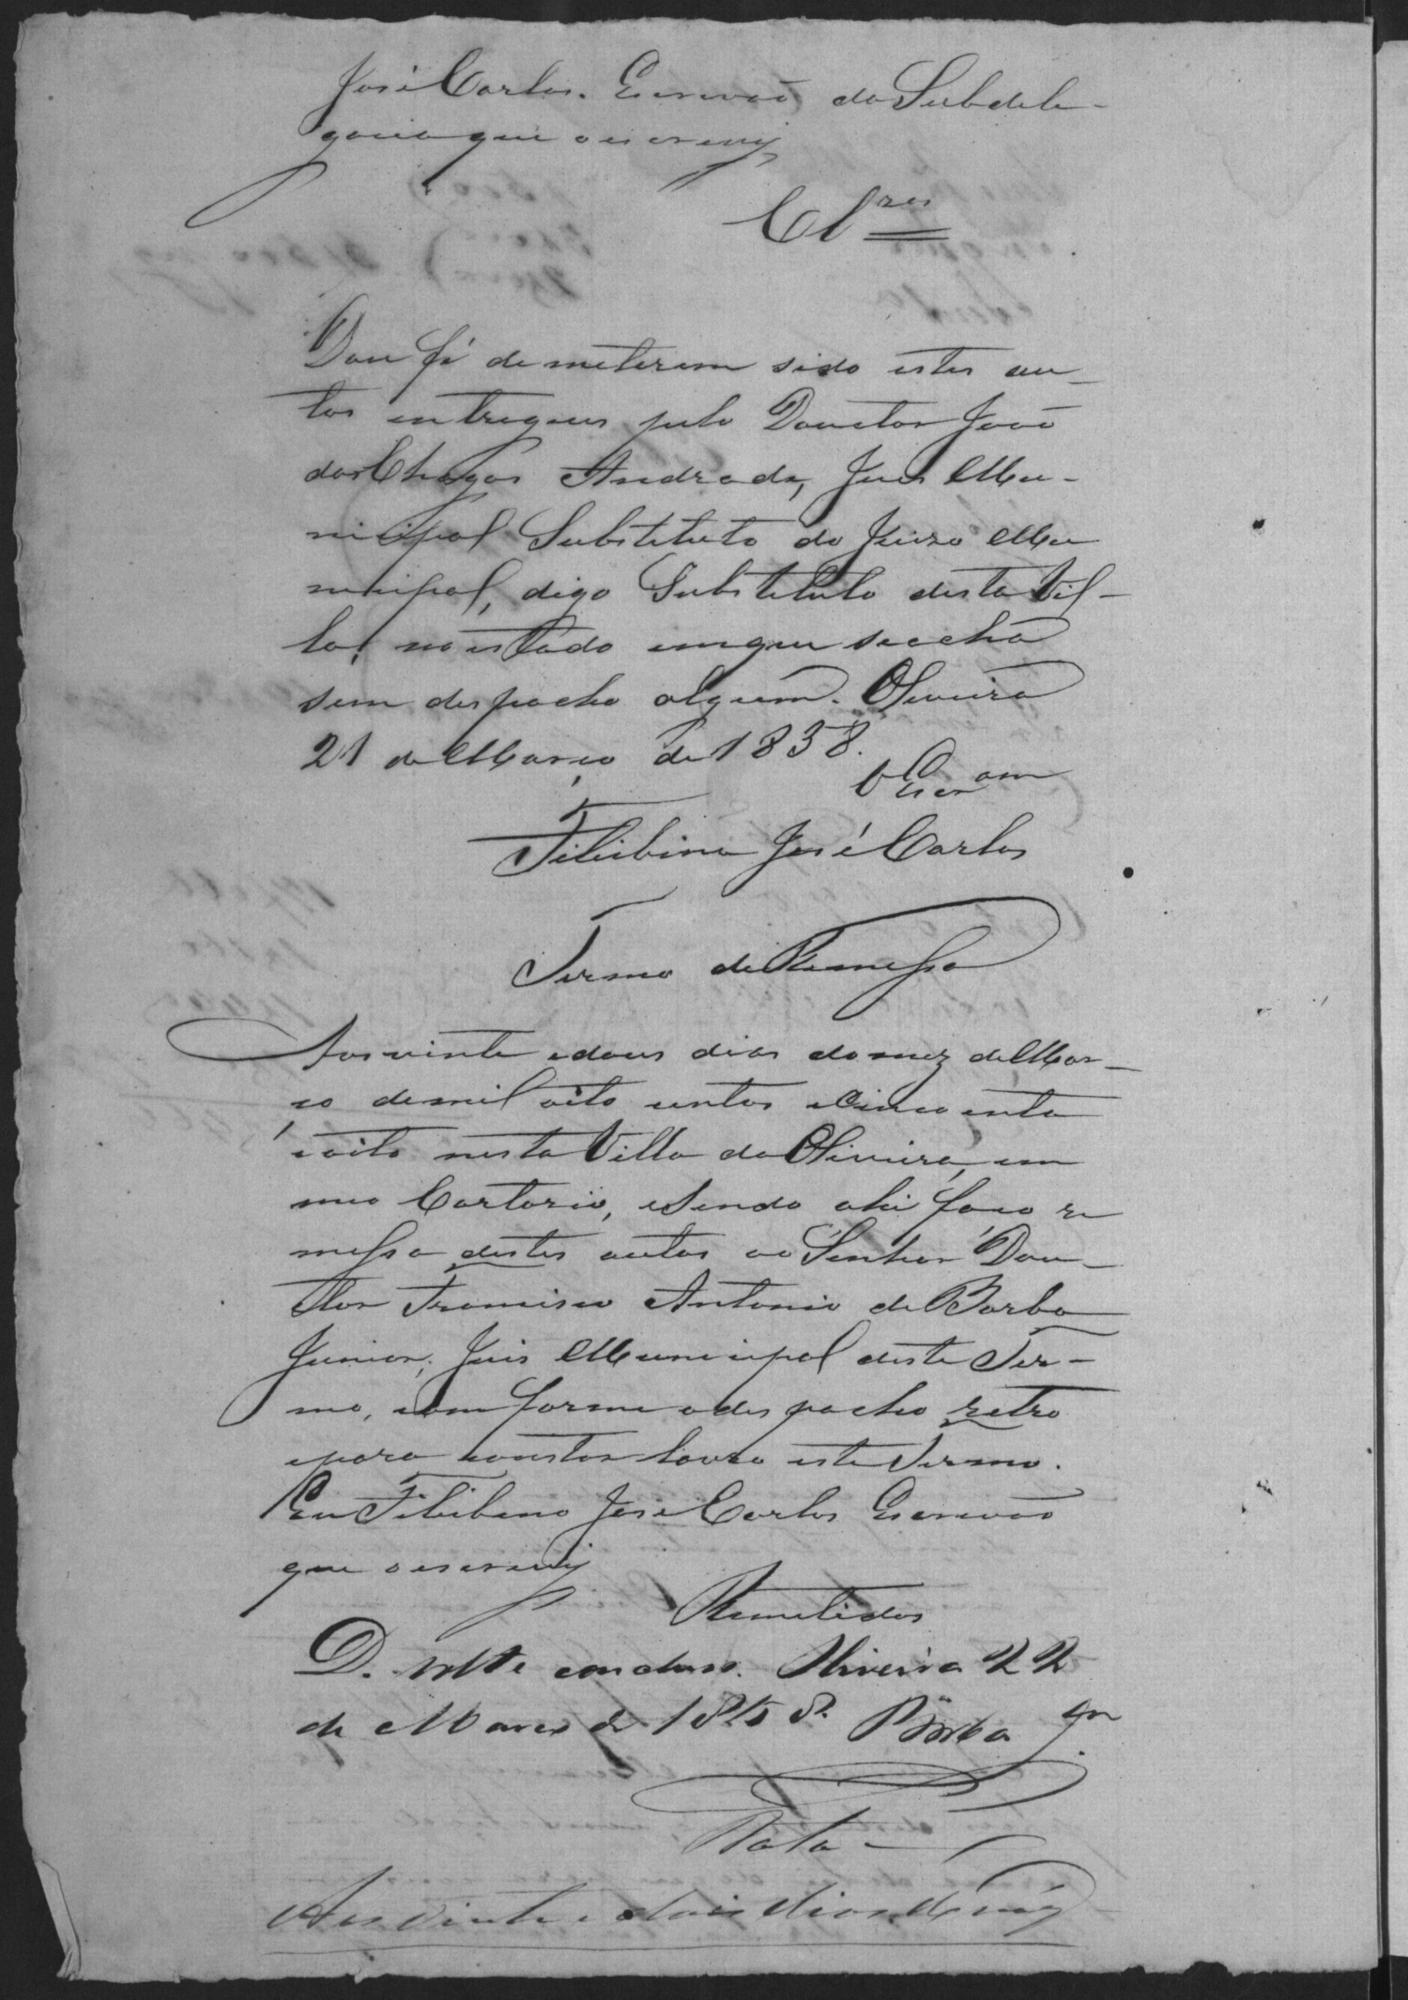 José Carlos. Escrivaõ da Subdele-
gacia que o escrevy
Cl.zos
Dou fé de me terem sido estes au-
tos entregues pelo Douctor Joaõ
das Chagas Andrade, Juis Mu-
nicipal Substituto do Juizo Mu
nicipal, digo Substituto desta Vil-
la, no estado em que se acha
sem despacho algum. Oliveira
21 de Março de 1858.
O Escr.am
Filisbino José Carlos
Termo de Remessa
Aos vinte e dous dias do mez de Mar-
ço de mil oito centos e Cincoenta
e oito nesta Villa da Oliveira, em
meo Cartorio, e Sendo ahi faço re
messa destes autos ao Senhor Dou-
ctor Francisco Antonio de Borba
Junior, Juis Municipal deste Ter-
mo, com forme o despacho retro
e para constar lavro este Termo.
Eu Filisbino José Carlos Escrivaõ
que o escrevy
Remetidos
D. volte concluso. Oliveira 22
de Março de 1858. Borba Jr.
Data
Aos vinte e dois dias do mez